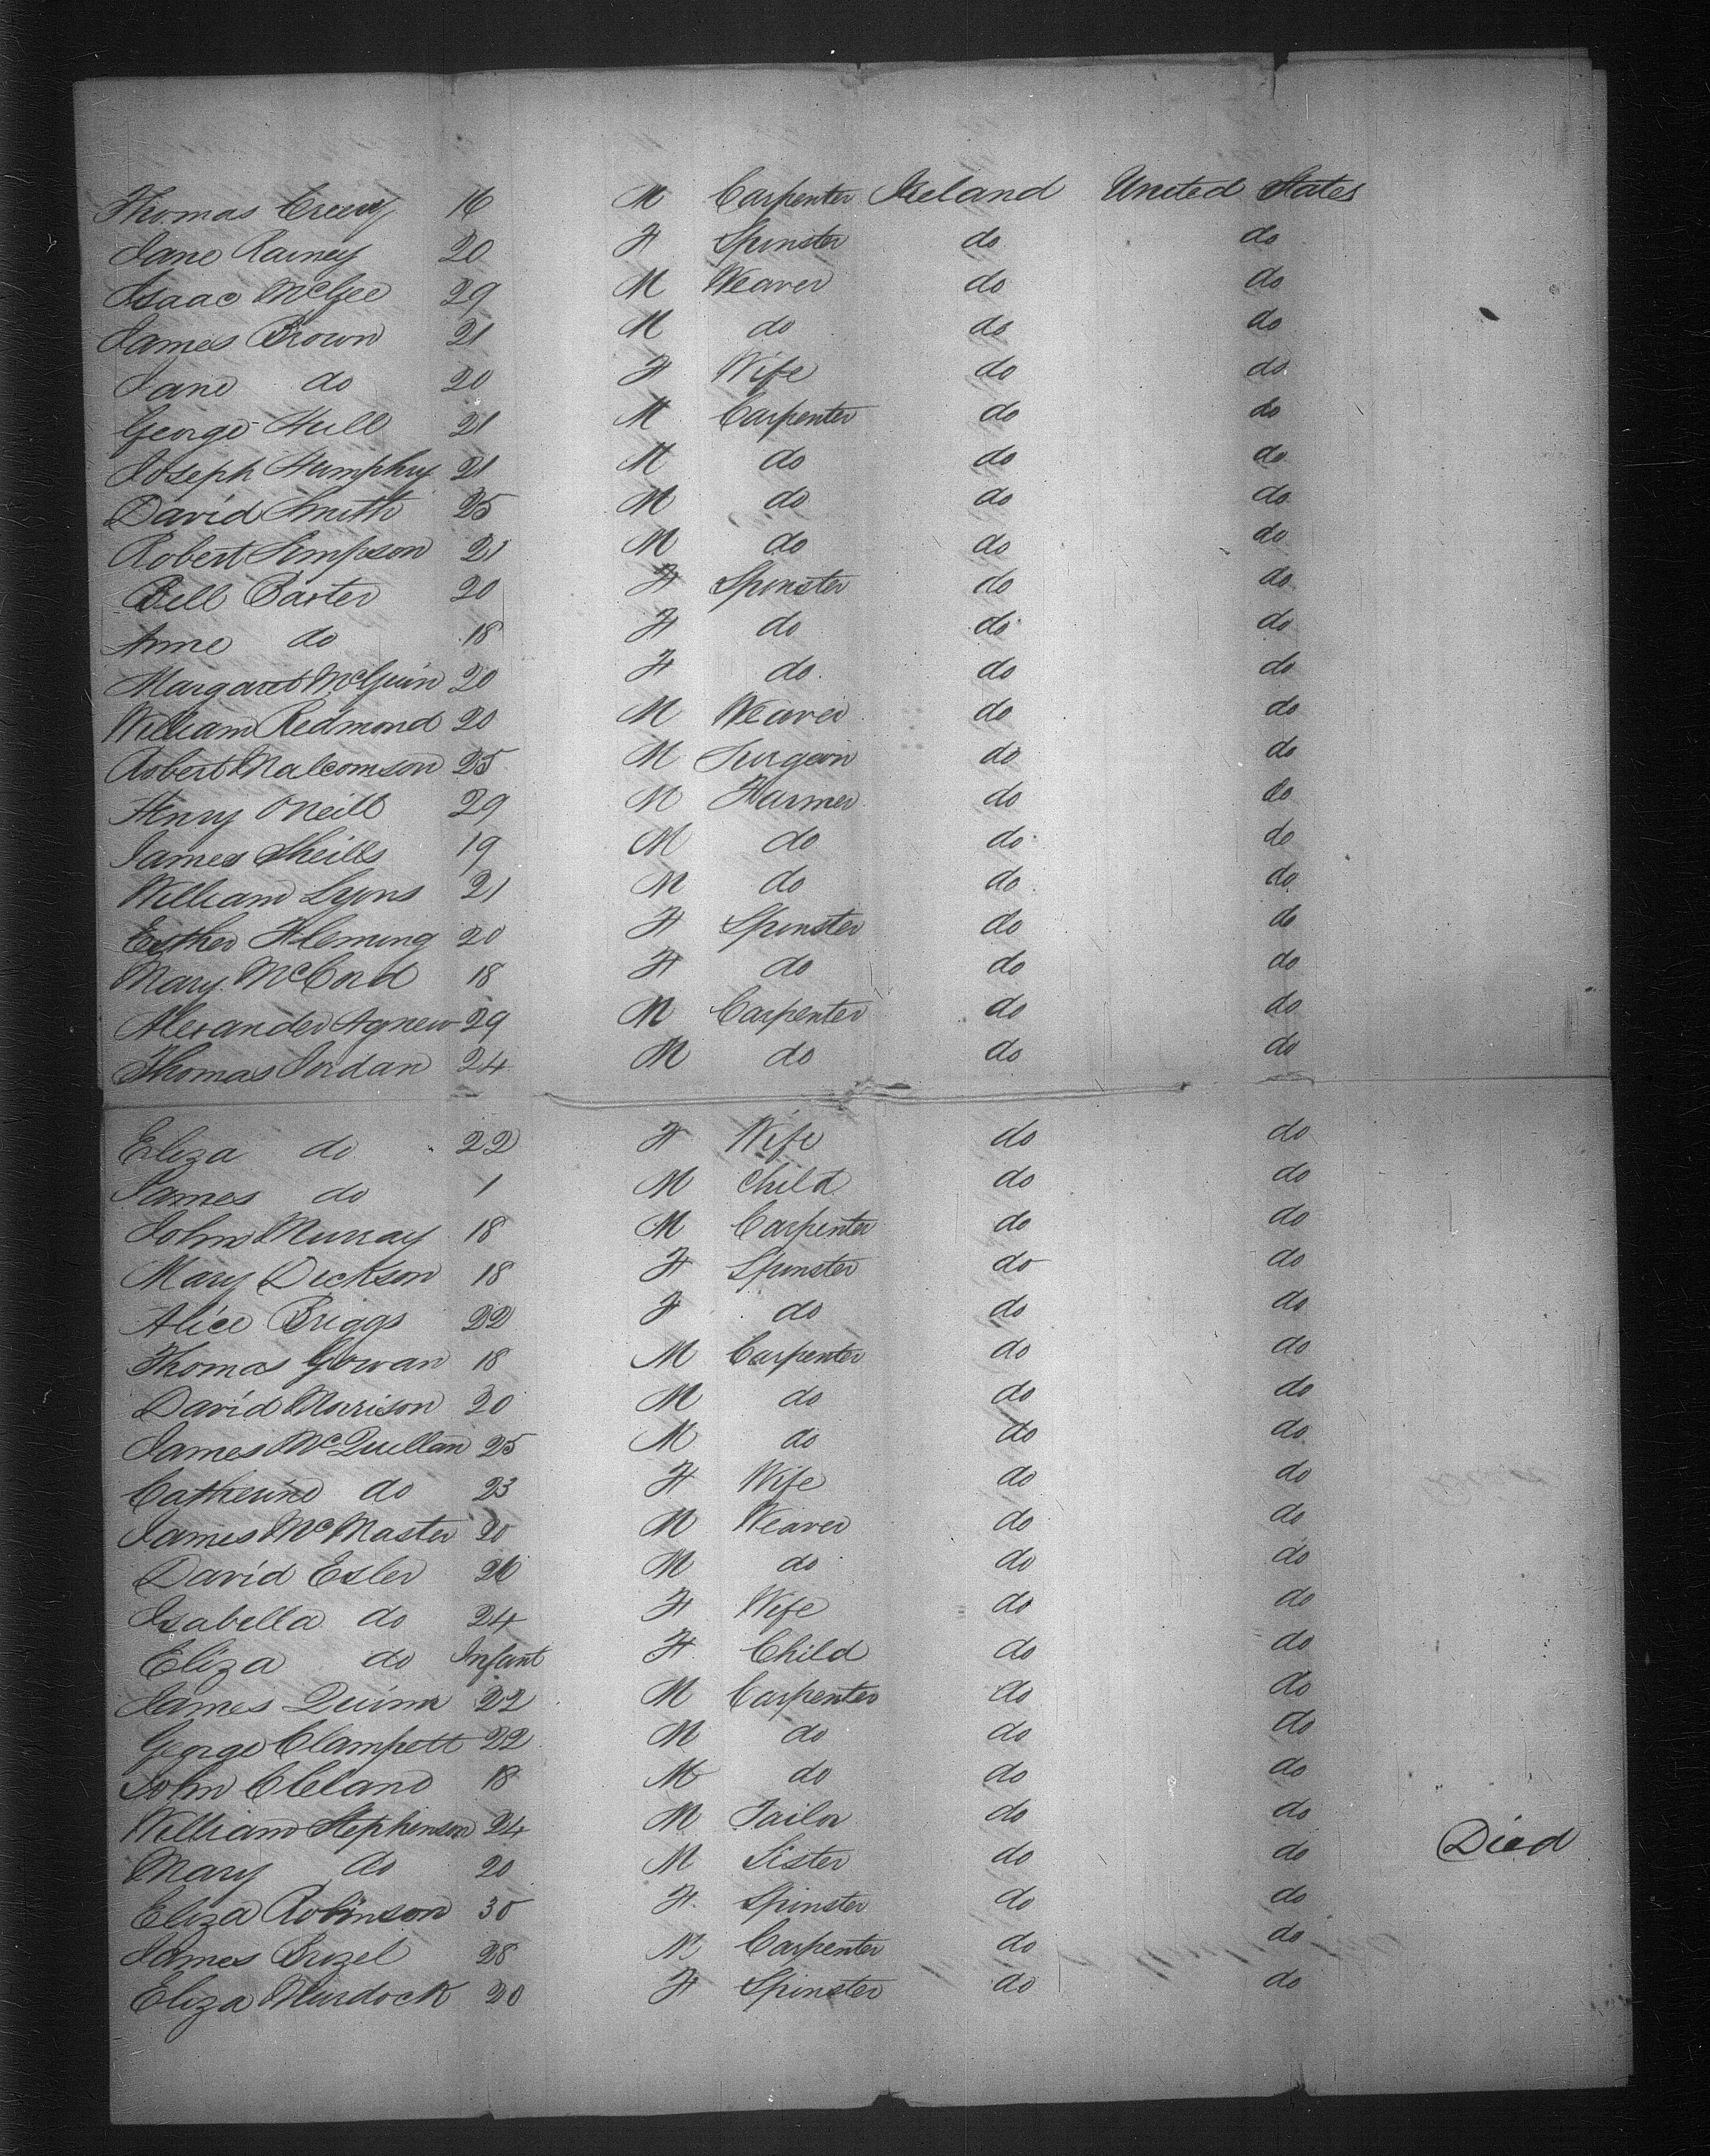 Thomas Creery 16 M Carpenter Ireland United States
Jane Rainey 20 F Spinster do do
Isaac McGee 29 M Weaver do do
James Brown 21 M do do do
Jane do 20 F Wife do do
George Hull 21 M Carpenter do do
Joseph Humphry 21 M do do do
David Smith 25 M do do do
Robert Simpson 21 M do do do
Bell Baxter 20 F Spinster do do
Anne do 18 F do do do
Margaret McGuin 20 F do do do
William Redmond 20 M Weaver do do
Robert Malcomson 25 M Surgeon do do
Henry ONeill 29 M Farmer do do
James Sheills 19 M do do do
William Lyons 21 M do do do
Esther Fleming 20 F Spinster do do
Mary McCord 18 F do do do
Alexander Agnew 29 M Carpenter do do
Thomas Jordan 24 M do do do
Eliza do 22 F Wife do do
James do 1 M Child do do
John Murray 18 M Carpenter do do
Mary Dickson 18 F Spinster do do
Alice Briggs 22 F do do do
Thomas Gowan 18 M Carpenter do do
David Morrison 20 M do do do
James McQuillan 25 M do do do
Catherine do 23 F Wife do do
James McMaster 20 M Weaver do do
David Esler 26 M do do do
Isabella do 24 F Wife do do
Eliza do Infant F Child do do
James Quinn 22 M Carpenter do do
George Clampett 22 M do do do
John Cleland 18 M do do do
William Stephenson 24 M Tailor do do
Mary do 20 M Sister do do Died
Eliza Robinson 30 F Spinster do do
James 28 M Carpenter do do
Eliza Murdock 20 F Spinster do do